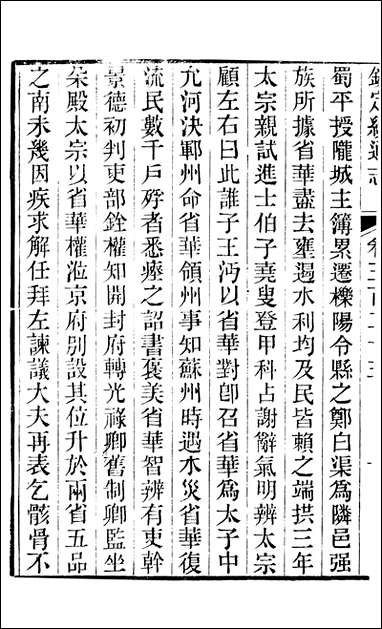 欽定續通志
卷三百二十五
蜀平授隴城主簿累遷櫟陽令縣之鄭白渠爲隣邑强
族所據省華盡去壅遏水利均及民皆賴之端拱三年
太宗親試進士伯子堯叟登甲科占謝辭氣明辨太宗
顧左右曰此誰子王沔以省華對卽召省華爲太子中
允河決鄆州命省華領州事知蘇州時遇水災省華復
流民數千戶殍者悉瘞之詔書褒美省華智辨有吏幹
景德初判吏部銓權知開封府轉光祿卿舊制卿監坐
朵殿太宗以省華權涖京府別設其位升於兩省五品
之南未幾因疾求解任拜左諫議大夫再表乞骸骨不